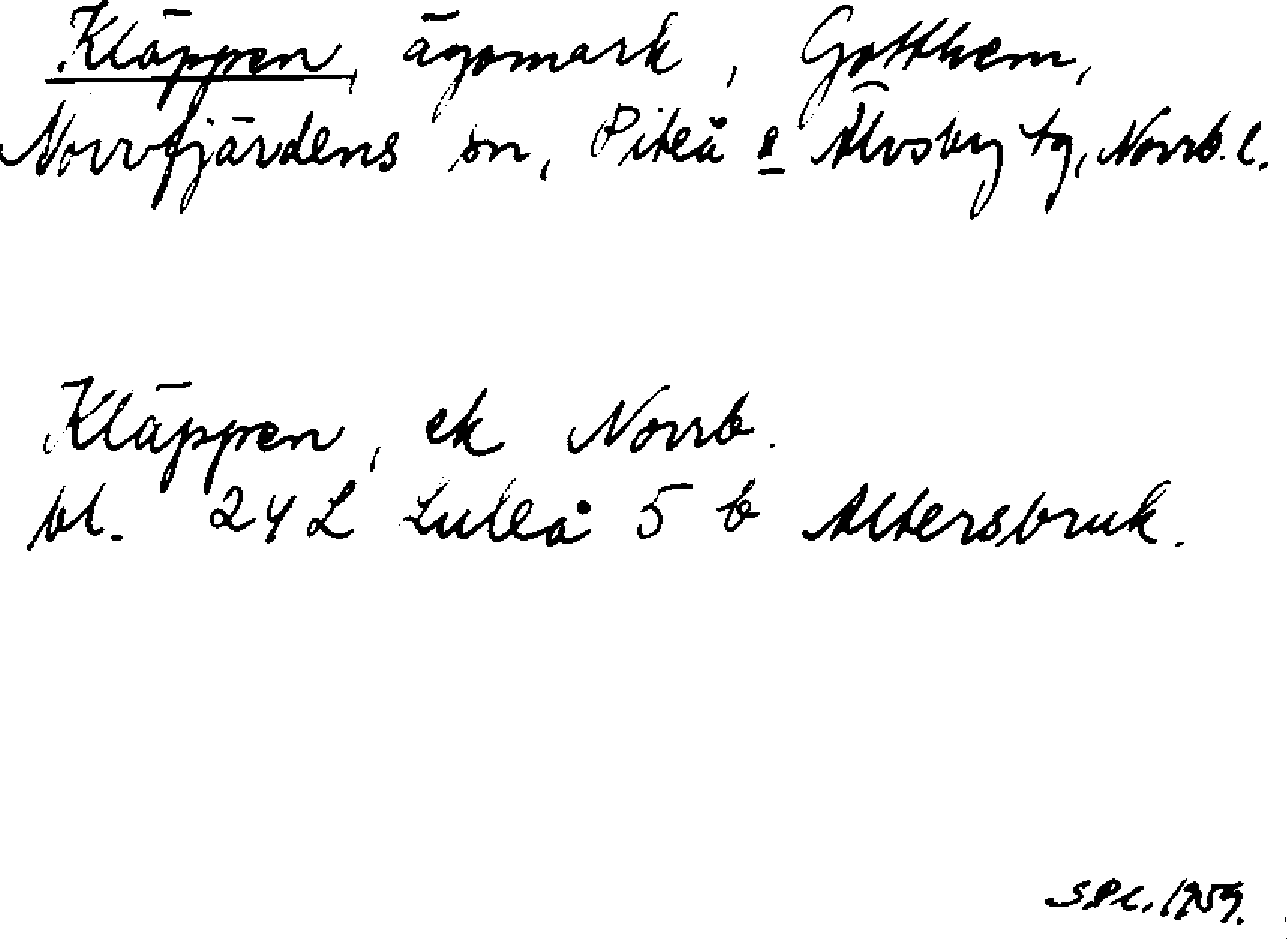 Kläppen, ägomark, Gotthem,
Norrfjärdens sn, Piteå o Älvsby tg, Norrb. l.
Kläppen, ek Norrb.
bl. 24 L Luleå 5 b Altersbruk.
1959.